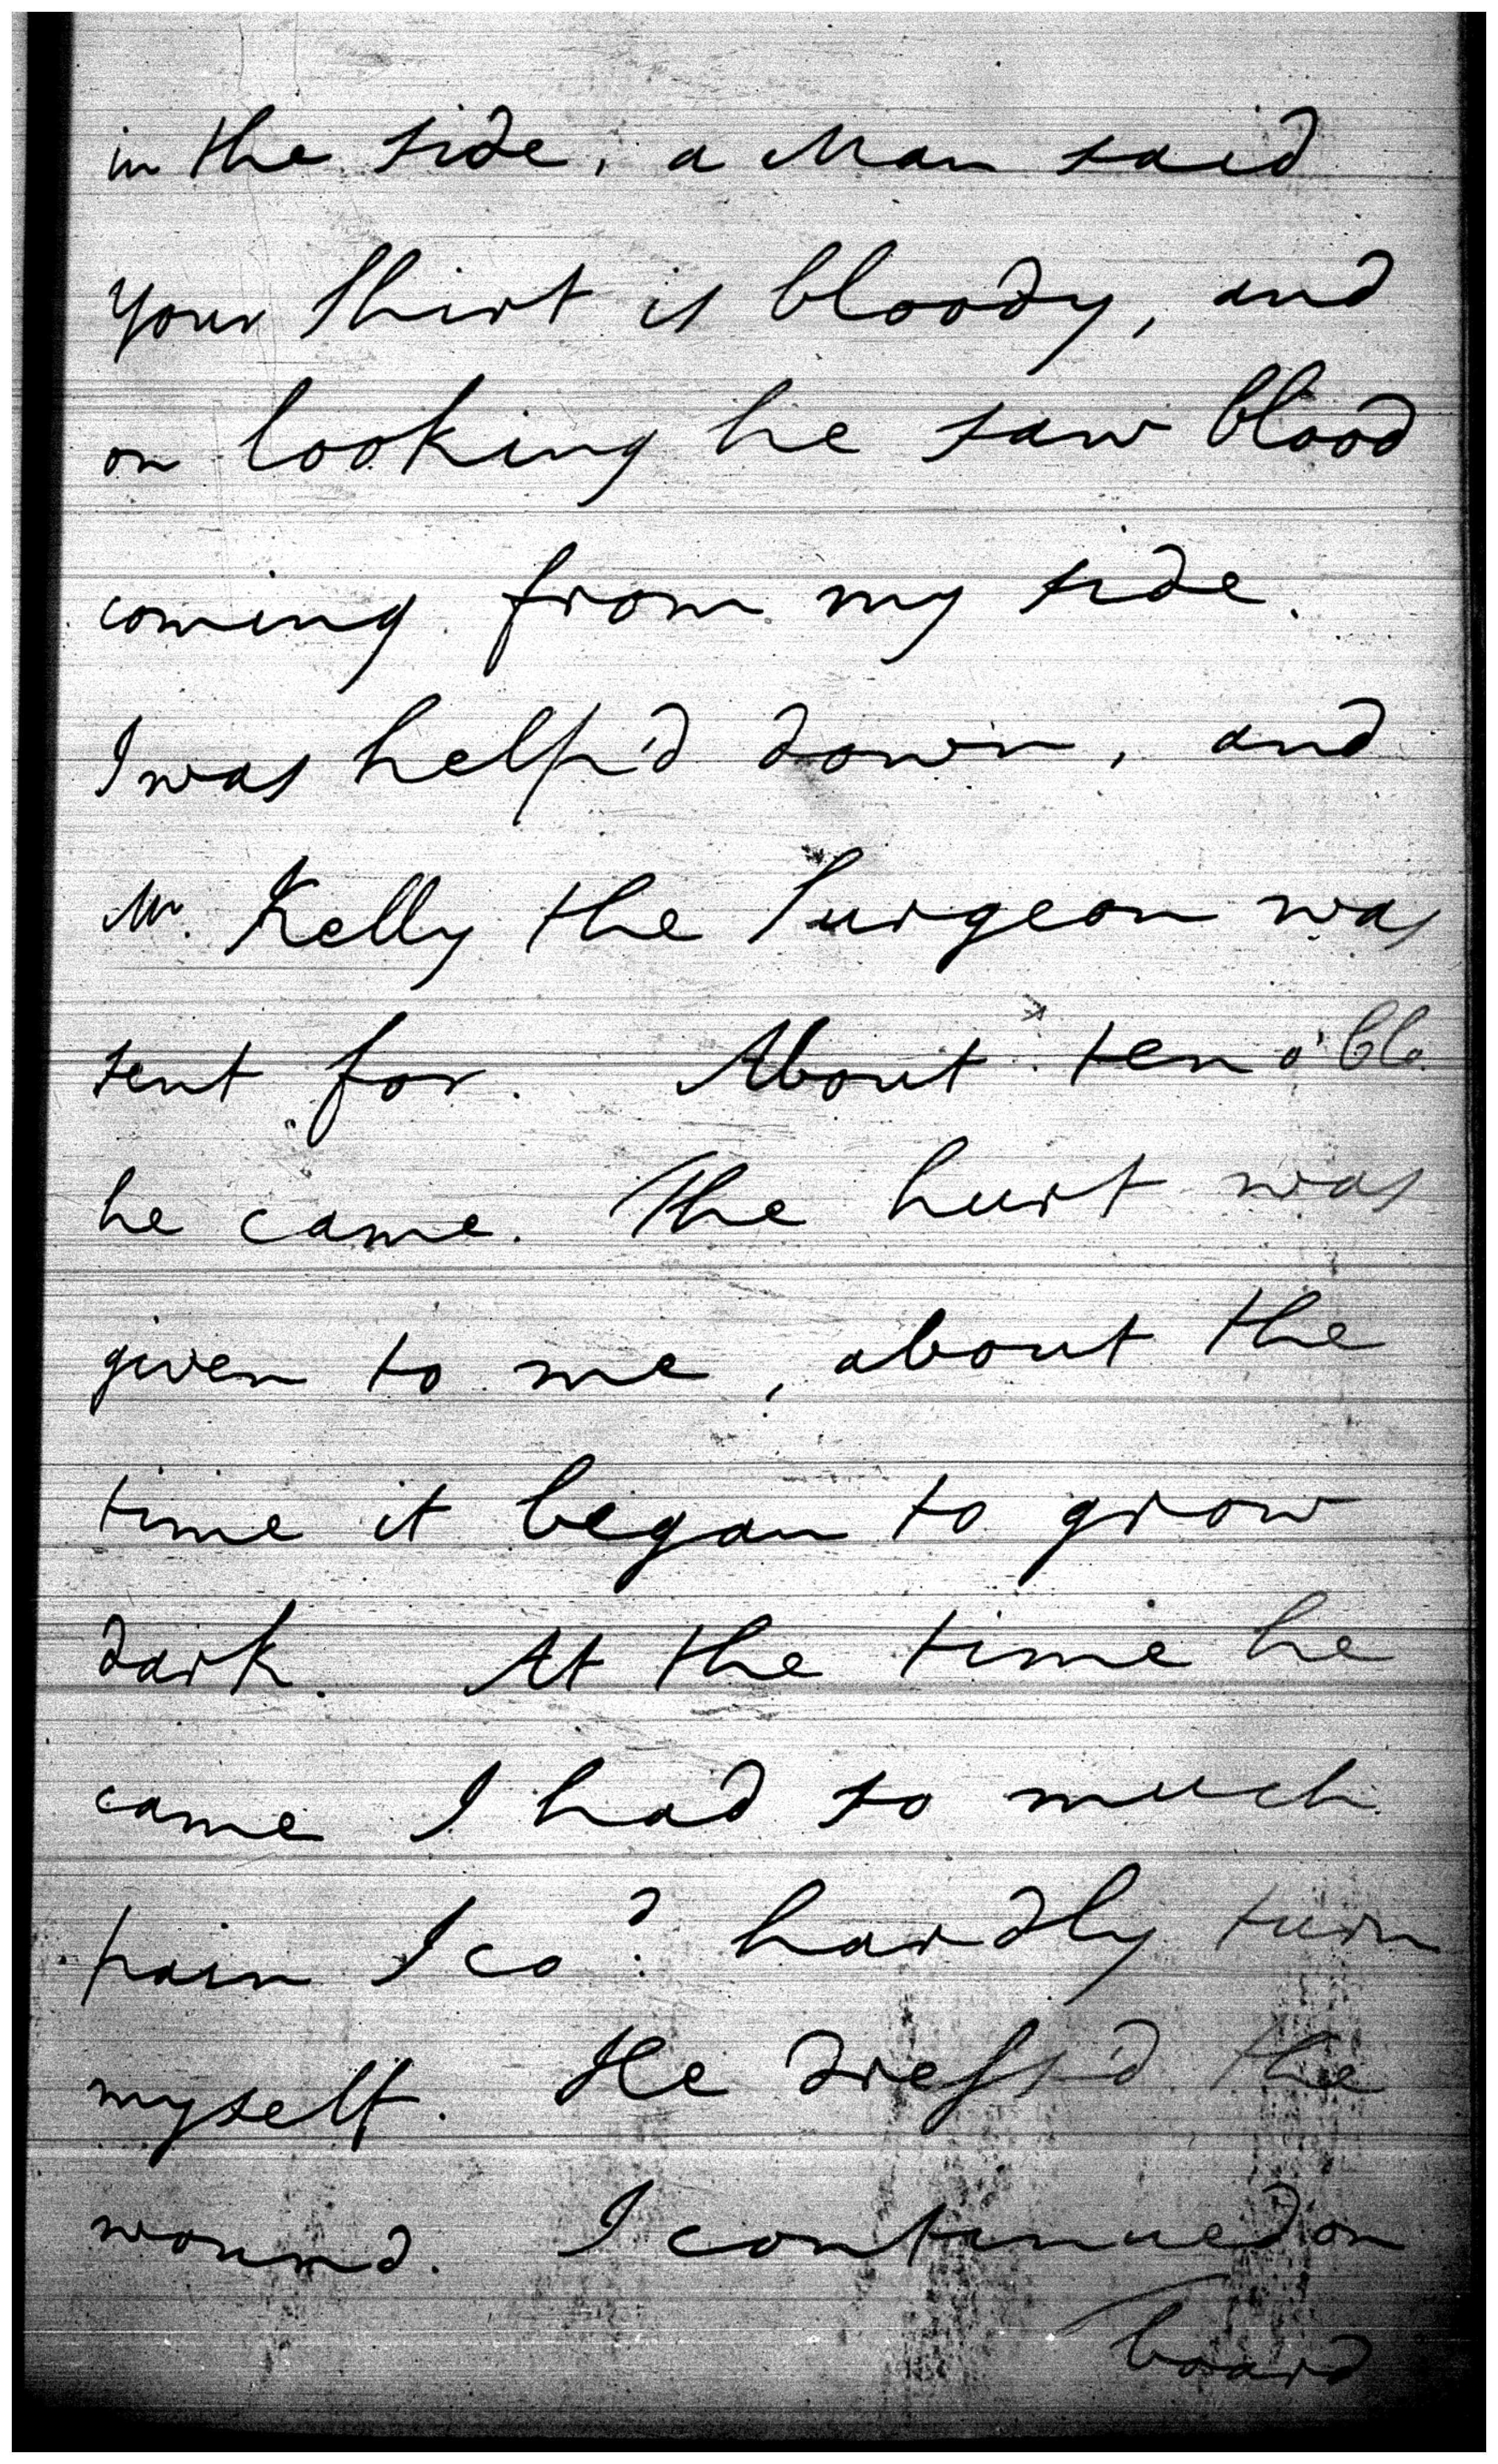 in the side, a Man said
your Shirt is bloody, and
on looking he saw blood
coming from my side.
I was help'd down, and
Mr. Kelly the Surgeon was
sent for. About ten o'Clo.
he came. The hurt was
given to me, about the
time it began to grow
dark. At the time he
came I had so much
pain I cod. hardly turn
myself. He dress'd the
wound. I continued on
board